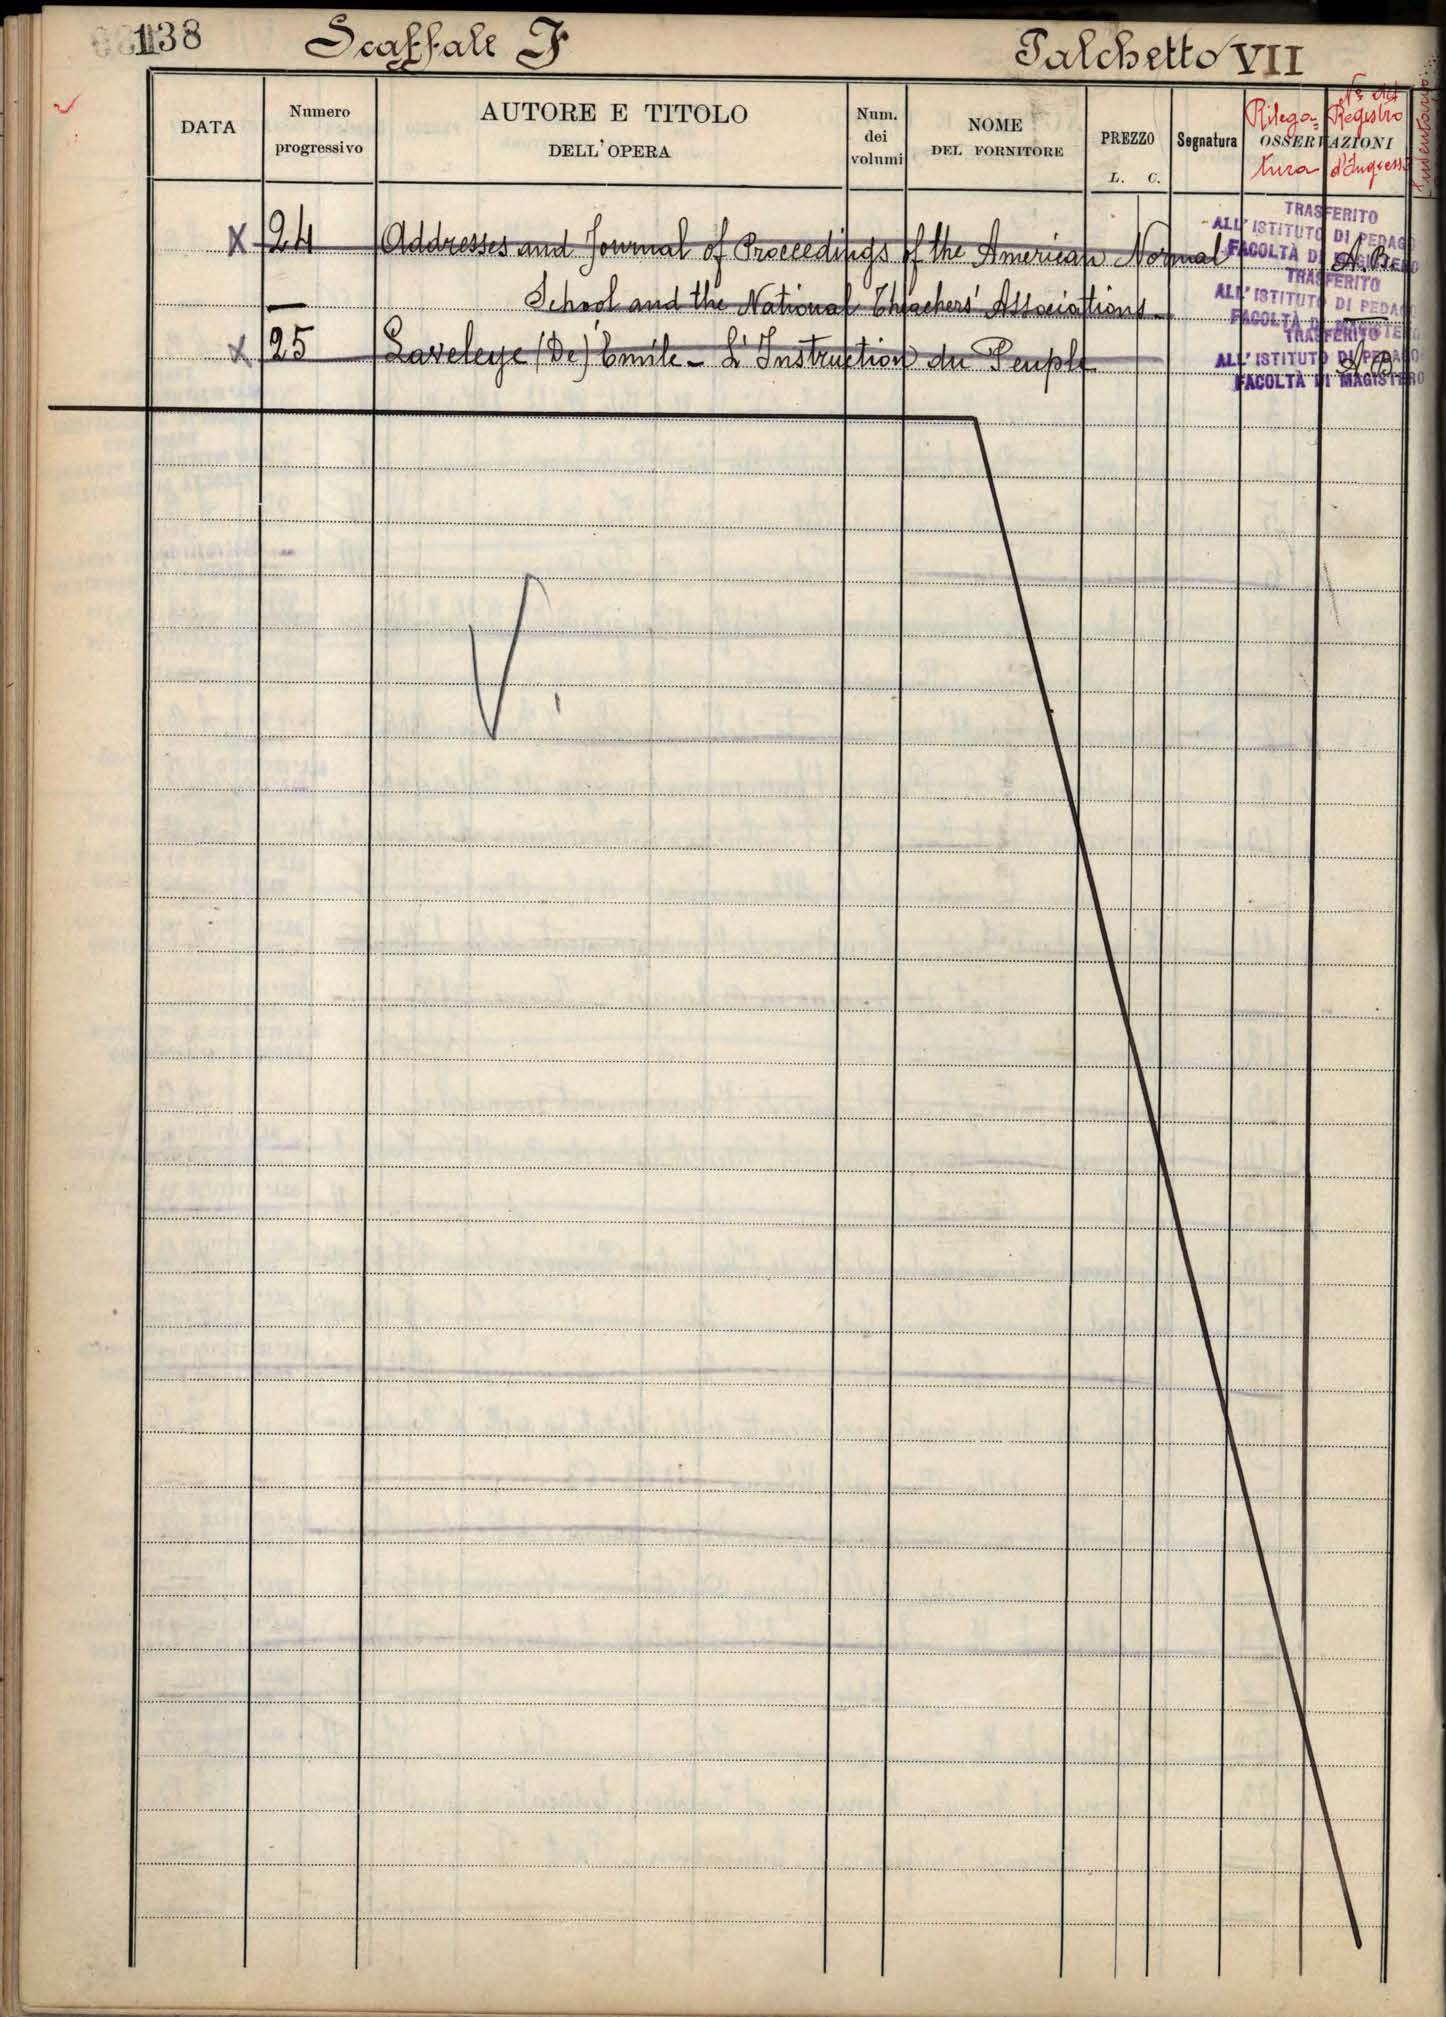 138 Scaffale F Palchetto VII
DATA
Numero
progressivo
AUTORE E TITOLO
DELL'OPERA
Num.
dei
volumi
NOME
DEL FORNITORE
PREZZO
L. C.
Segnatura
OSSERVAZIONI
Rilega=
tura
N.º del
Registro
d'Ingresso
Inventario
X 24 Addresses and Journal of Proceedings of the American Normal A.B.
— School and the National Theachers' Associations. —
X 25 Laveleye (De) Emile - L'Instruction du Peuple A.B.
TRASFERITO
ALL'ISTITUTO DI PEDAGO
FACOLTÀ DI MAGISTERO
TRASFERITO
ALL'ISTITUTO DI PEDAGO
FACOLTÀ DI MAGISTERO
TRASFERITO
ALL'ISTITUTO DI PEDAGO
FACOLTÀ DI MAGISTERO